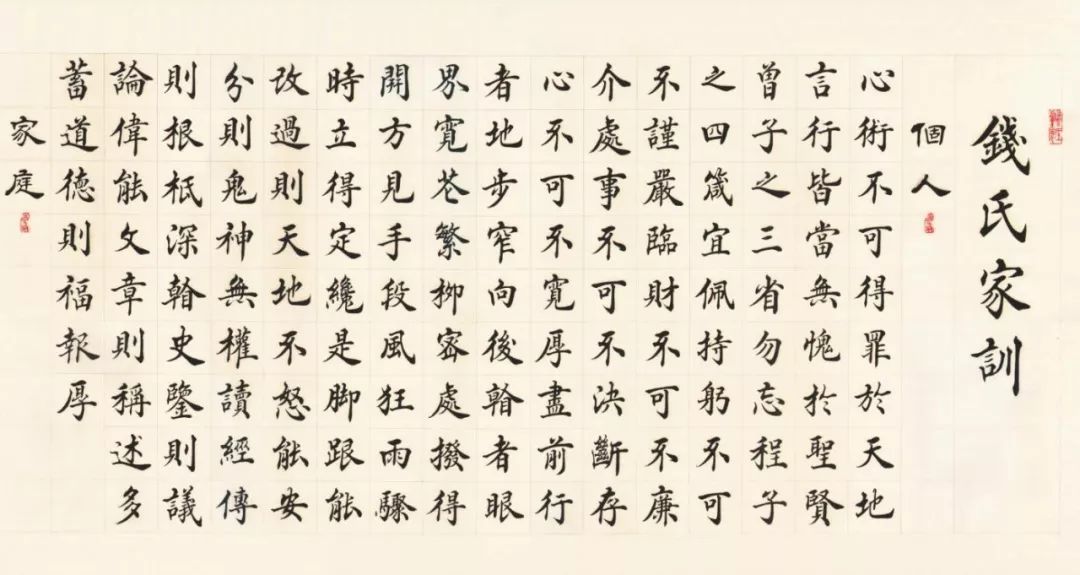 錢氏家訓
個人
心術不可得罪於天地
言行皆當無愧於聖賢
曾子之三省勿忘程子
之四箴宜佩持躬不可
不謹嚴臨財不可不廉
介處事不可不決斷存
心不可不寬厚盡前行
者地步窄向後看者眼
界寬花繁柳密處撥得
開方見手段風狂雨驟
時立得定纔是脚跟能
改過則天地不怒能安
分則鬼神無權讀經傳
則根柢深看史鑒則議
論偉能文章則稱述多
蓄道德則福報厚
家庭